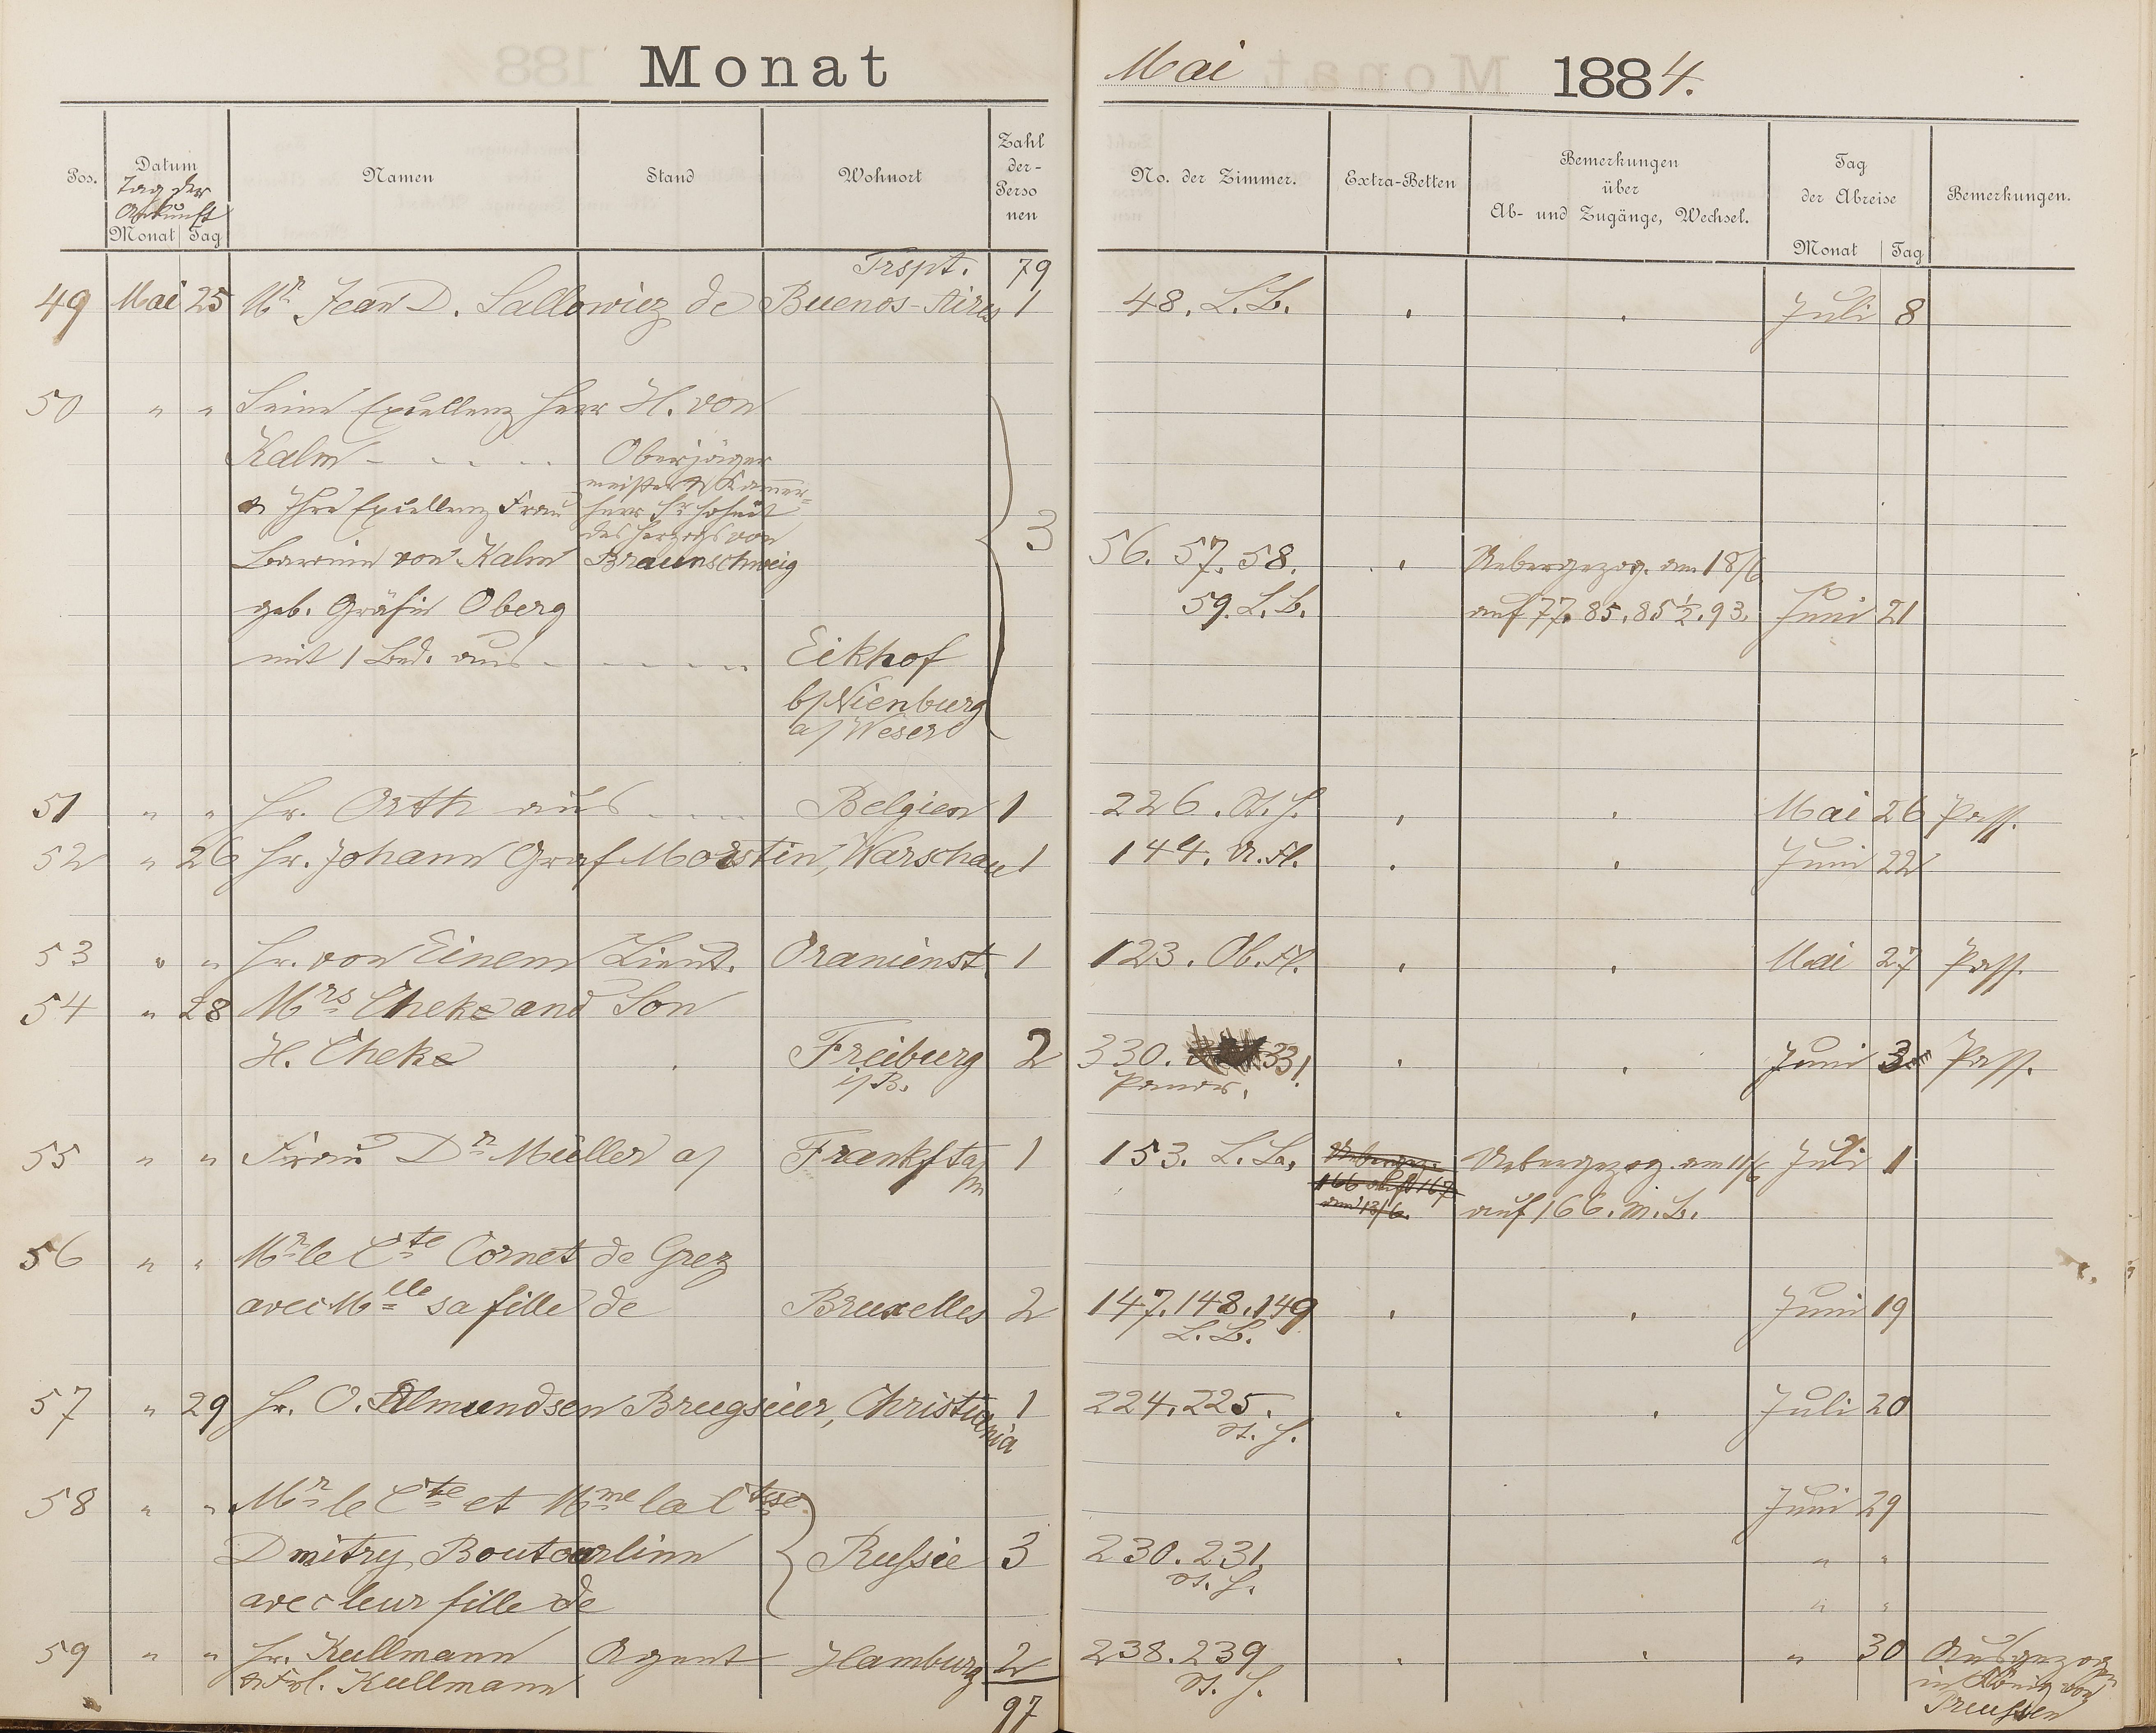 Monat
Mai 1884.
Pos. Datum Namen Stand Wohnort Zahl der- Perso nen No. der Zimmer. Extra-Betten Bemerkungen über Ab- und Zugänge, Wechsel. Tag der Abreise Bemerkungen.
Tag der Ankunft
Monat Tag Monat Tag
Trspt. 79
49 Mai 25 Mr Jean D. Sallowiez de Buenos-Aires 1 48. L.B. Juli 8
50 " " Seine Excellenz Herr H. von
Kalm - - - - Oberjäger
meister & Kammer=
& Ihre Excellenz Frau herr Sr Hoheit
des Herzogs von
Baronin von Kalm Braunschweig 3 56. 57. 58. Uebergezog. am 18/6
geb. Gräfin Oberg 59. L.B. auf 77. 85. 85½. 93. Juni 21
mit 1 Bed. aus - - - - Eikhof
b/Nienburg
a/Weser
51 " " Hr. Orth aus - - - Belgien 1 226. St. H. Mai 26 Pass.
52 " 26 Hr. Johann Graf Morstin, Warschau 1 144. U. Fl. Juni 22
53 " " Hr. von Einem Lieut. Oranienst. 1 123. Ob. Fl. Mai 27 Pass.
54 " 28 Mrs Cheke and Son
H. Cheke Freiburg 2 330. 331 Juni 3 Pass.
i/B. Panor.
55 " " Frau Dr Müller a/ Frankft a/m 1 153. L. Ba, Ueberge. Uebergezog. am 11/6 Juli 1
166 auf 167
am 13/6. auf 166. M. B.
56 " " Mr le Cte Cornet de Grez
avec Mlle sa fille de Bruxelles 2 147. 148. 149 Juni 19
L. B.
57 " 29 Hr. O. Almundsen Brugseier, Christiania 1 224. 225. Juli 20
St. H.
58 " " Mr le Cte et Mme la Ctsse Juni 29
Dmitry Boutourlinn Russie 3 230. 231. " "
St. H.
avec leur fille de " "
59 " " Hr. Kullmann Agent Hamburg 2 238. 239 " 30 Ausgezogen
& Frl. Kullmann St. H. in König von
97 Preussen